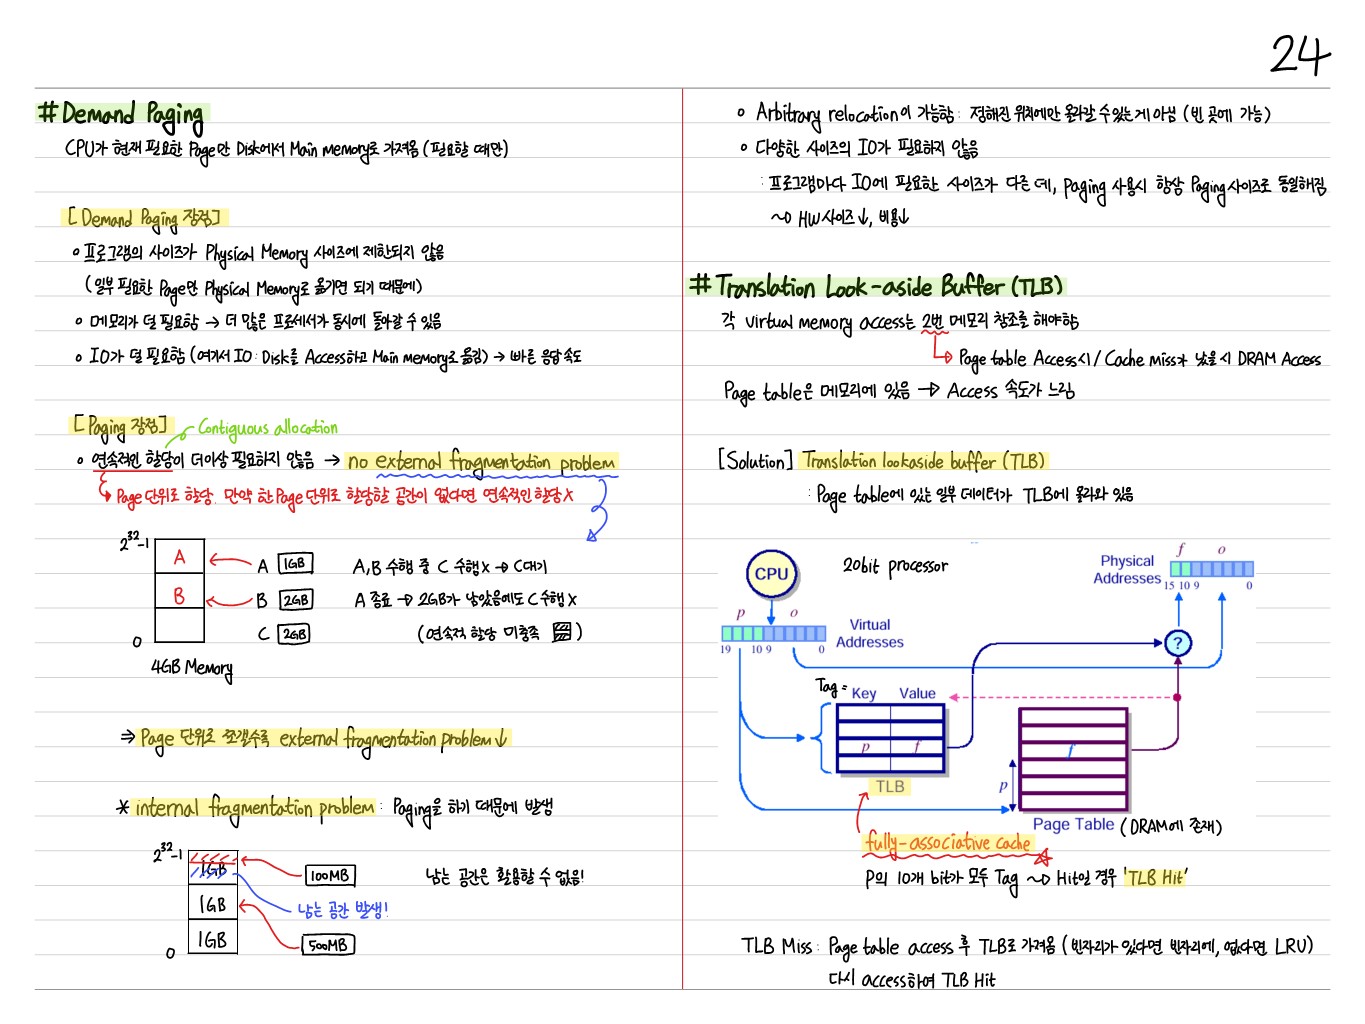 24
# Demand Paging
CPU가 현재 필요한 Page만 Disk에서 Main memory로 가져옴 (필요할 때만)
[Demand Paging 장점]
프로그램의 사이즈가 Physical Memory 사이즈에 제한되지 않음
(일부 필요한 Page만 Physical Memory로 옮기면 되기 때문에)
메모리가 덜 필요함 → 더 많은 프로세서가 동시에 돌아갈 수 있음
IO가 덜 필요함 (여기서 IO : Disk를 Access하고 Main memory로 옮김) → 빠른 응답속도
[Paging 장점]
Contiguous allocation
연속적인 할당이 더이상 필요하지 않음 → no external fragmentation problem
Page 단위로 할당. 만약 한 Page 단위로 할당할 공간이 없다면 연속적인 할당 X
2^32-1
A
B
0
4GB Memory
A 1GB
B 2GB
C 2GB
A,B 수행 중 C 수행 X → C대기
A 종료 → 2GB가 남았음에도 C 수행 X
(연속적 할당 미충족)
⇒ Page 단위로 쪼갤수록 external fragmentation problem↓
* internal fragmentation problem : Paging을 하기 때문에 발생
2^32-1
1GB
1GB
1GB
0
100MB
남는 공간 발생!
500MB
남는 공간은 활용할 수 없음!
Arbitrary relocation이 가능함 : 정해진 위치에만 올라갈 수 있는게 아님 (빈 곳에 가능)
다양한 사이즈의 IO가 필요하지 않음
: 프로그램마다 IO에 필요한 사이즈가 다른데, paging 사용시 항상 Paging 사이즈로 동일해짐
~> HW사이즈↓, 비용↓
# Translation Look-aside Buffer (TLB)
각 virtual memory access는 2번 메모리 참조를 해야함
Page table Access시 / Cache miss가 났을 시 DRAM Access
Page table은 메모리에 있음 → Access 속도가 느림
[Solution] Translation lookaside buffer (TLB)
: Page table에 있는 일부 데이터가 TLB에 올라와 있음
CPU
20bit processor
p o
19 10 9 0
Virtual
Addresses
Physical
Addresses
f o
15 10 9 0
?
Tag =
Key Value
p f
TLB
f
p
Page Table (DRAM에 존재)
fully-associative cache
P의 10개 bit가 모두 Tag ~> Hit일 경우 'TLB Hit'
TLB Miss : Page table access 후 TLB로 가져옴 (빈자리가 있다면 빈자리에, 없다면 LRU)
다시 access하여 TLB Hit